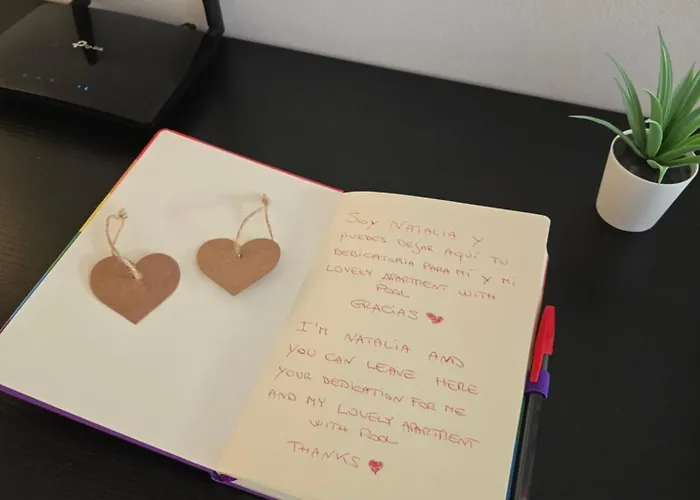 tp-link
SOY NATALIA Y
PUEDES DEJAR AQUÍ TU
DEDICATORIA PARA MÍ Y MI
LOVELY APARTMENT WITH
POOL
GRACIAS
I'M NATALIA AND
YOU CAN LEAVE HERE
YOUR DEDICATION FOR ME
AND MY LOVELY APARTMENT
WITH POOL
THANKS